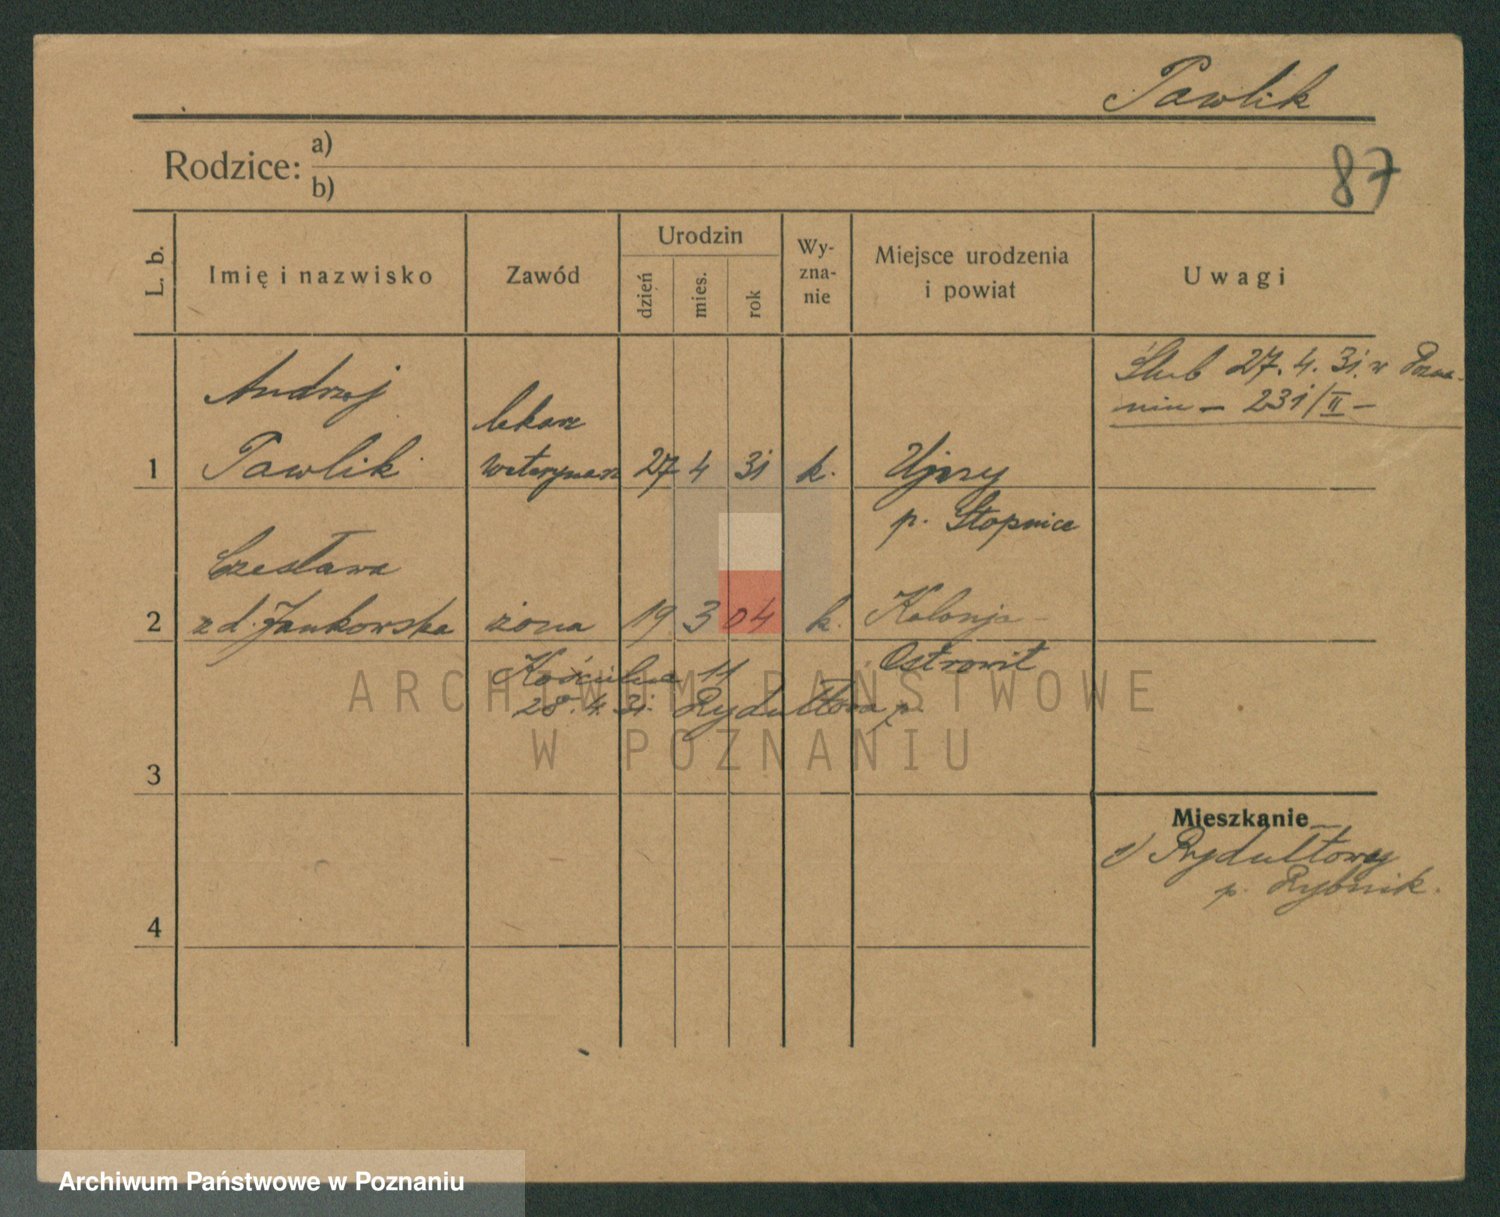 Pawlik
Rodzice: a)
b)
87
L. b.
Imię i nazwisko
Zawód
Urodzin
dzień
mies.
rok
Wy-
zna-
nie
Miejsce urodzenia
i powiat
Uwagi
Ślub 27.4.31. w Pozna-
niu – 231/II –
Andrzej
Pawlik
lekarz
weterynarz
1
27 4 31 k.
Ujazy
p. Stopnica
Czesława
2
z d. Jankowska
żona
19 3 04 k.
Kolonja
Ostrowit
Kościelna 11
28.4.31. Rydułtowa p.
ARCHIWUM PAŃSTWOWE
W POZNANIU
3
Mieszkanie
1) Rydułtowy
p. Rybnik.
4
Archiwum Państwowe w Poznaniu